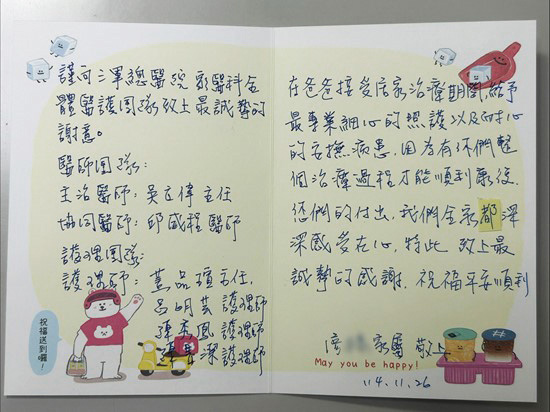 謹向三軍總醫院家醫科全
體醫護團隊致上最誠摯的
謝意。
醫師團隊:
主治醫師:吳立偉主任
協同醫師:邱威程醫師
護理團隊:
護理師:
品瑄主任,
呂明芸護理師
護理師
潔護理師
祝福送到囉!
在爸爸接受居家治療期間,給予
最專業細心的照護以及耐心
的安撫病患,因為有你們整
個治療過程才能順利康復,
您們的付出,我們全家都深
深感受在心,特此致上最
誠摯的感謝,祝福平安順利
家屬敬上
May you be happy!
114.11.26